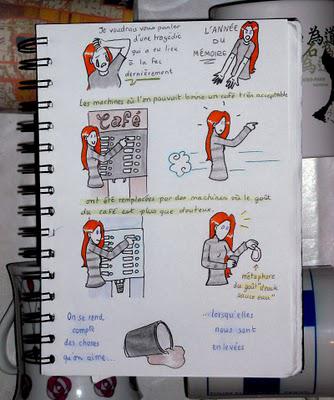 Je voudrais vous parler
d'une tragédie
qui a eu lieu
à la fac
dernièrement
L'ANNÉE
DU
MÉMOIRE
Les machines où l'on pouvait boire un café très acceptable
Café
ont été remplacées par des machines où le goût
du café est plus que douteux
métaphore
du goût
On se rend
compte
des choses
qu'on aime...
...lorsqu'elles
nous sont
enlevées
為道